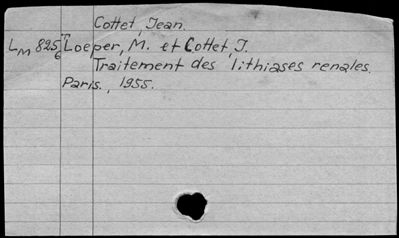 Cottet, Jean.
LM 8256 Loeper, M. et Cottet, J.
Traitement des lithiases renales.
Paris., 1955.